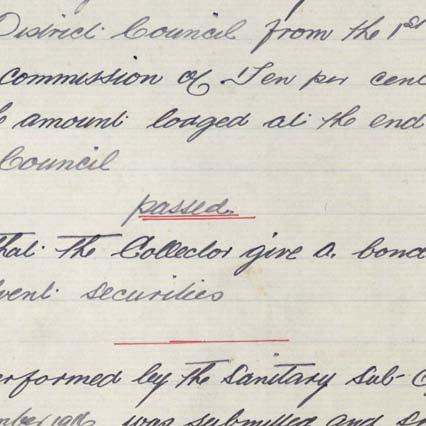 District Council from the 1st
commission of Ten per cent
amount loaged at the end
Council
passed.
that the Collector give a bond
securities
erformed by the Sanitary Sub-
was submitted and